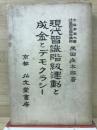 米田庄太郎著
現代智識階級運動と
成金とデモクラシー
京都 弘文堂書房